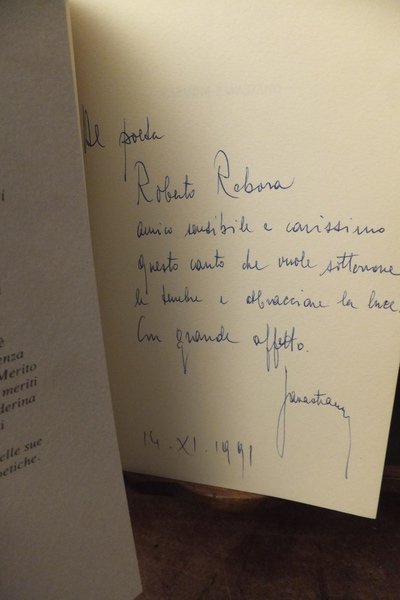 Al poeta
Roberto Rebora
amico sensibile e carissimo
questo canto che vuole sotterrare
le tenebre e abbracciare la luce.
Con grande affetto.
14 . XI . 1991
i
è
enza
Merito
meriti
derina
ti
elle sue
oetiche.